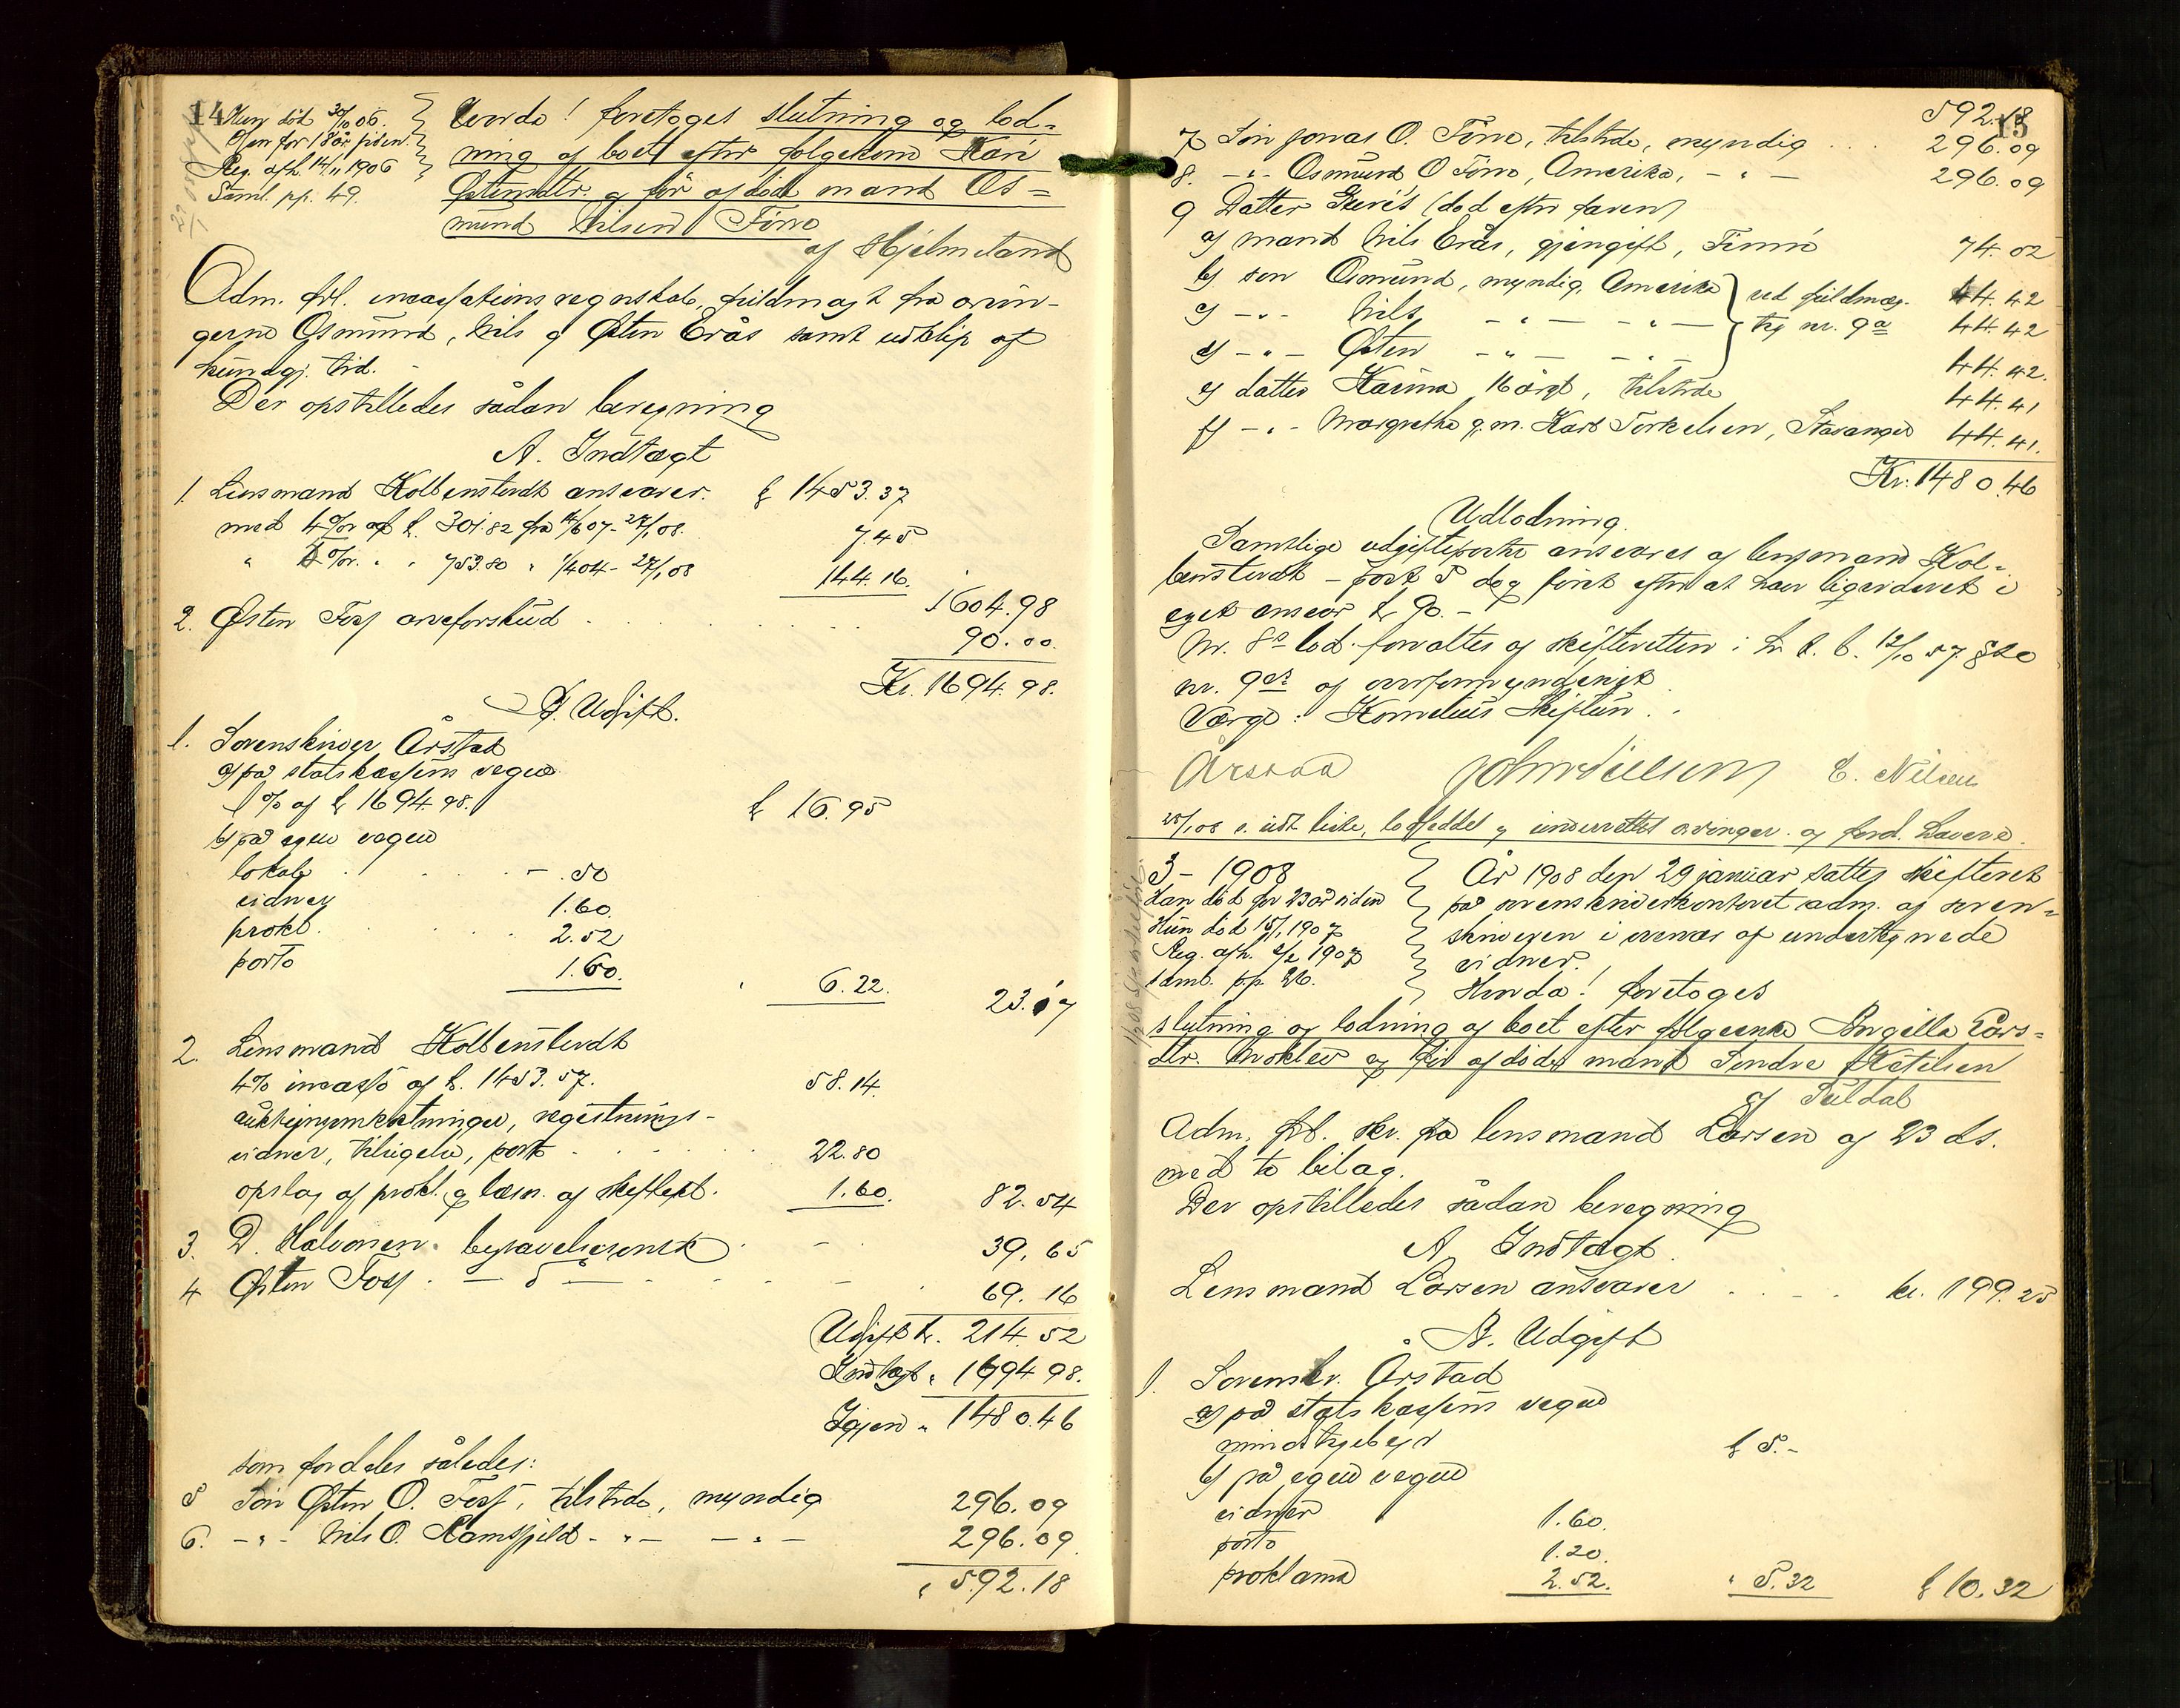 14
Hun død 30/10 06.
Osm for 18 år siden.
Reg. afh. 14/11 1906
Saml. pp. 49.
Herda! foretoges slutning og lod=
ning af boet efter folgekone Kari
Østensdtr. og før afdøde mand Os=
mund Nilsen Finno
af Hjelmeland
Adm. frl. incassationsregnskab, fuldmagt fra arvin-
gerne Osmund, Nils og Østen Erås samt udklip af
kundgj. tid.
Der opstilledes sådan beregning
A. Indtægt
1. Lensmand Kolbenstvedt ansvarer. k 1453.37
med 4% af k. 301.82 fra 14/6 07 - 27/1 08. 7.45
" % " " 753.80 " 1/4 04 - 27/1 08 144.16. 1604.98
2. Østen Foss arveforskud . . . . 90.00.
Kr. 1694.98.
B. Udgift.
1. Sorenskriver Årstad
a) på statskassens vegne
1% af k 1694.98. k 16.95
b) på egne vegne
lokale . . - .50
vidner 1.60.
prokl. . . . 2.52
porto 1.60.
" 6.22. 23.17
2. Lensmand Kolbenstvedt
4% incasso af k. 1453.57. 58.14.
auktionsomkostninger, registrerings-
vidner, tilsigelse, porto . . . . 22.80
opslag af prokl. og læsn. af skiftest. 1.60. 82.54
3. D. Halvorsen. begravelseromk. - 39.65
4 Østen Foss. - d° - - - - 69.16
Udgift k. 214.52
Indtægt " 1694.98.
Igjen " 1480.46
som fordeles således:
5 Søn Østen O. Foss, tilstede, myndig 296.09
6. - " - Nils O. Ramsfjeld - " - - " - 296.09
" 592.18
15
592.18
7 Søn Jonas O. Finno, tilstede, myndig . . . 296.09
8. - " - Osmund O Finno, Amerika, - " - 296.09
9 Datter Siri's (død efter faren)
a) mand Nils Erås, gjengift, Finnø 74.02
b) søn Osmund, myndig, Amerika } ved fuldmæg- 44.42
c) - " - Nils - " - - " - } tig nr. 9a 44.42
d) - " - Østen - " - - " - } 44.42.
e) datter Karina 16 årgl, tilstede 44.41
f) - " - Margrethe g.m. Karl Torkelsen, Stavanger 44.41.
Kr. 1480.46
Udlodning.
Samtlige udgiftsposter ansvares af lensmand Kol-
benstvedt - post 5 dog først efter at have liqvideret i
eget ansvar k 90. -
Nr. 8s lod forvaltes af skifteretten i h. t. l. 12/10 57 §20
nr. 9es af overformynderiet.
Værge: Kornelius Skiftun.
Årstad John Nilsen E. Nilsen
28/1 08 e. udt. liste, lodseddel og underrettet arvinger og ford. haverne.
3 - 1908
Han død for 23 år siden
Hun død 15/1 1907
Reg. afh. 2/2 1907
Saml. pp. 26.
År 1908 den 29 januar sattes skifteret
på sorenskriverkontoret adm. af soren-
skriveren i nærvær af undertegnede
vidner.
Herda! foretoges
slutning og lodning af boet efter folgeenke Ingella Lars-
dtr. Mokleiv og før afdøde mand Sondre Ketilsen
af Suldal
Adm. frl. skr. fra lensmand Larsen af 23 ds.
med to bilag.
Der opstilledes sådan beregning
A. Indtægt.
Lensmand Larsen ansvarer . . - . kr. 199.25
B. Udgift
1. Sorenskr. Årstad
a) på statskassens vegne
mindstegebyr k 5.-
b) på egne vegne
vidner 1.60.
porto 1.20.
proklama 2.52. " 5.32 k 10.32